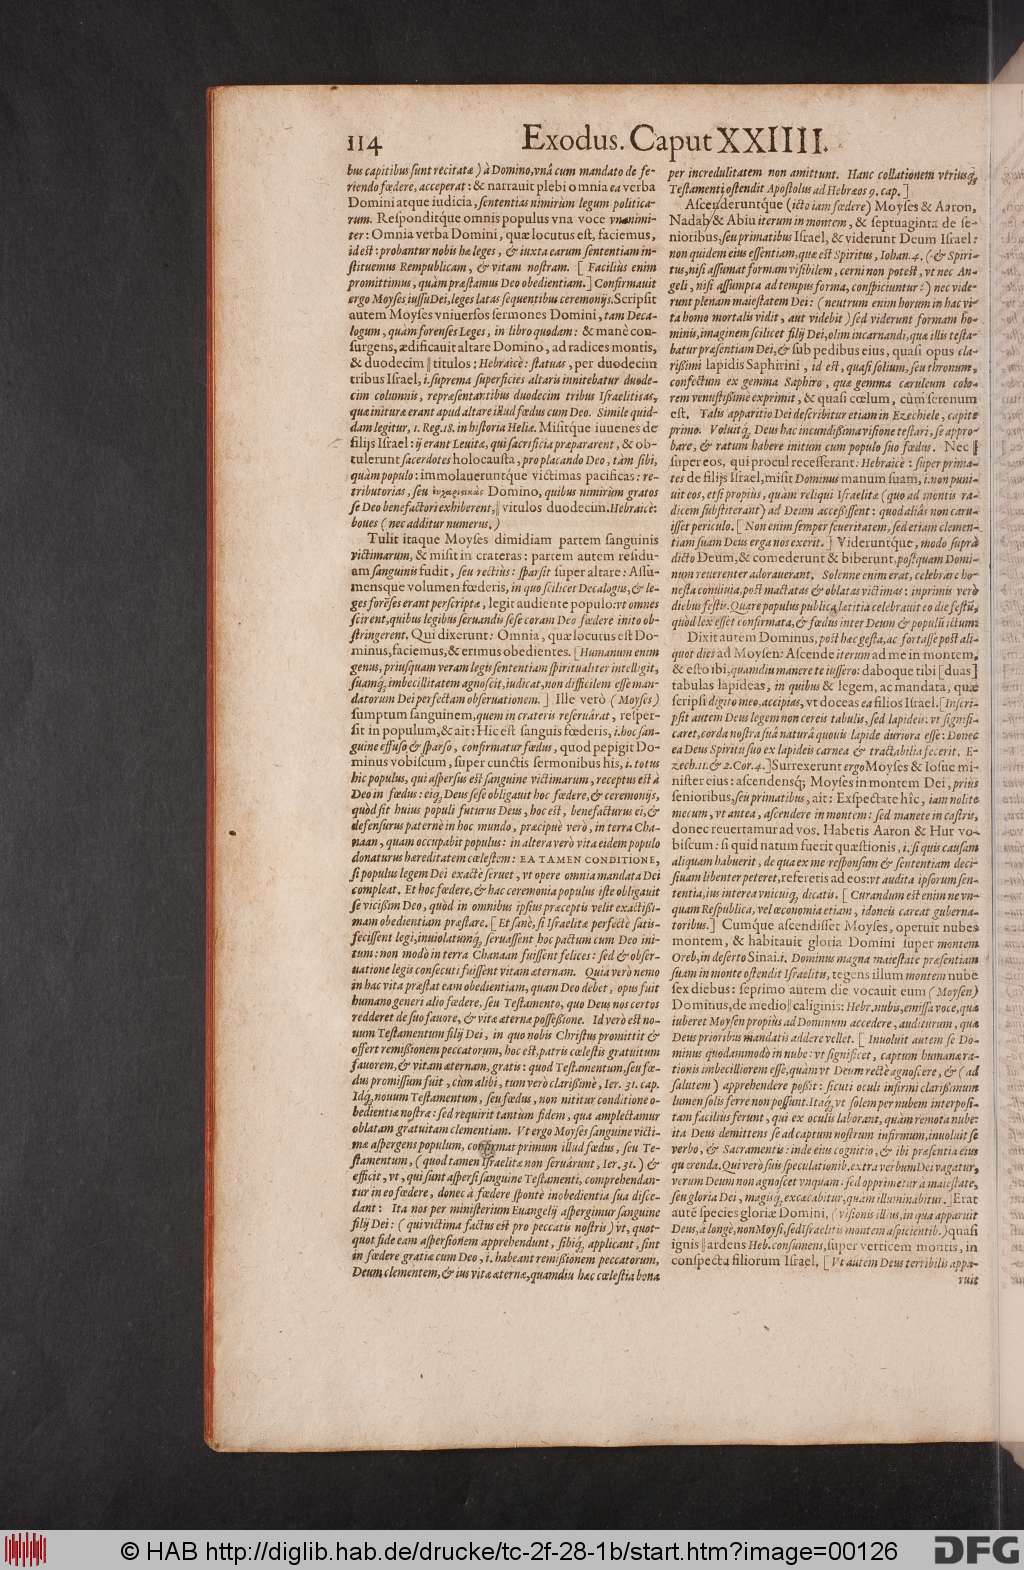 114 Exodus. Caput XXIIII.
bus capitibus sunt recitatæ) à Domino, vnâ cum mandato de fe-
riendo fœdere, acceperat: & narrauit plebi omnia ea verba
Domini atque iudicia, sententias nimirùm legum politica-
rum. Responditque omnis populus vna voce vnanimi-
ter: Omnia verba Domini, quæ locutus est, faciemus,
id est: probantur nobis hæ leges, & iuxta earum sententiam in-
stituemus Rempublicam, & vitam nostram. [ Faciliùs enim
promittimus, quàm præstamus Deo obedientiam.] Confirmauit
ergo Moyses iussu Dei, leges latas sequentibus ceremonijs. Scripsit
autem Moyses vniuersos sermones Domini, tam Deca-
logum, quàm forenses Leges, in libro quodam: & manè con-
surgens, ædificauit altare Domino, ad radices montis,
& duodecim || titulos: Hebraicè: statuas, per duodecim
tribus Israel, i. suprema superficies altaris innitebatur duode-
cim columnis, repræsentantibus duodecim tribus Israelitias,
quæ inituræ erant apud altare illud fœdus cum Deo. Simile quid-
dam legitur, 1. Reg. 18. in historia Heliæ. Misitque iuuenes de
filijs Israel: ij erant Leuitæ, qui sacrificia præpararent, & ob-
tulerunt sacerdotes holocausta, pro placando Deo, tàm sibi,
quàm populo: immolaueruntque victimas pacificas: re-
tributorias, seu Domino, quibus nimirùm gratos
se Deo benefactori exhiberent, || vitulos duodecim. Hebraicè:
boues (nec additur numerus.)
Tulit itaque Moyses dimidiam partem sanguinis
victimarum, & misit in crateras: partem autem residu-
am sanguinis fudit, seu rectiùs: sparsit super altare: Assu-
mensque volumen fœderis, in quo scilicet Decalogus, & le-
ges forēses erant perscriptæ, legit audiente populo: vt omnes
scirent, quibus legibus seruandis sese coram Deo fœdere inito ob-
stringerent. Qui dixerunt: Omnia, quæ locutus est Do-
minus, faciemus, & erimus obedientes. [Humanum enim
genus, priusquam veram legis sententiam spiritualiter intelligit,
suamq́; imbecillitatem agnoscit, iudicat, non difficilem esse man-
datorum Dei perfectam obseruationem. ] Ille verò (Moyses)
sumptum sanguinem, quem in crateris reseruârat, resper-
sit in populum, & ait: Hic est sanguis fœderis, i. hoc san-
guine effuso & sparso, confirmatur fœdus, quod pepigit Do-
minus vobiscum, super cunctis sermonibus his, i. totus
hic populus, qui aspersus est sanguine victimarum, receptus est à
Deo in fœdus: eiq́; Deus sese obligauit hoc fœdere, & ceremonijs,
quòd sit huius populi futurus Deus, hoc est, benefacturus ei, &
defensurus paternè in hoc mundo, præcipuè verò, in terra Cha-
naan, quam occupabit populus: in altera verò vita eidem populo
donaturus hæreditatem cœlestem: EA TAMEN CONDITIONE,
si populus legem Dei exactè seruet, vt opere omnia mandata Dei
compleat. Et hoc fœdere, & hac ceremonia populus iste obligauit
se vicißim Deo, quòd in omnibus ipsius præceptis velit exactißi-
mam obedientiam præstare. [ Et sanè, si Israelitæ perfectè satis-
fecissent legi, inuiolatumq́; seruassent hoc pactum cum Deo ini-
tum: non modò in terra Chanaan fuissent felices: sed & obser-
uatione legis consecuti fuissent vitam æternam. Quia verò nemo
in hac vita præstat eam obedientiam, quam Deo debet, opus fuit
humano generi alio fœdere, seu Testamento, quo Deus nos certos
redderet de suo fauore, & vitæ æternæ poßeßione. Id verò est no-
uum Testamentum filij Dei, in quo nobis Christus promittit &
offert remißionem peccatorum, hoc est, patris cœlestis gratuitum
fauorem, & vitam æternam, gratis: quod Testamentum, seu fœ-
dus promissum fuit, cùm alibi, tum verò clarißimè, Ier. 31. cap.
Idq́; nouum Testamentum, seu fœdus, non nititur conditione o-
bedientiæ nostræ: sed requirit tantùm fidem, qua amplectamur
oblatam gratuitam clementiam. Vt ergo Moyses sanguine victi-
mæ aspergens populum, confirmat primum illud fœdus, seu Te-
stamentum, (quod tamen Israelitæ non seruârunt, Ier. 31.) &
efficit, vt, qui sunt aspersi sanguine Testamenti, comprehendan-
tur in eo fœdere, donec à fœdere spontè inobedientia sua disce-
dant: Ita nos per ministerium Euangelij aspergimur sanguine
filij Dei: (qui victima factus est pro peccatis nostris) vt, quot-
quot fide eam aspersionem apprehendunt, sibiq́; applicant, sint
in fœdere gratiæ cum Deo, i. habeant remißionem peccatorum,
Deum clementem, & ius vitæ æternæ, quamdiu hæc cœlestia bona
per incredulitatem non amittunt. Hanc collationem vtriusq́;
Testamenti ostendit Apostolus ad Hebræos 9. cap. ]
Ascenderuntque (icto iam fœdere) Moyses & Aaron,
Nadab & Abiu iterum in montem, & septuaginta de se-
nioribus, seu primatibus Israel, & viderunt Deum Israel:
non quidem eius essentiam, quæ est Spiritus, Iohan. 4. (& Spiri-
tus, nisi assumat formam visibilem, cerni non potest, vt nec An-
geli, nisi assumpta ad tempus forma, conspiciuntur:) nec vide-
runt plenam maiestatem Dei: (neutrum enim horum in hac vi-
ta homo mortalis vidit, aut videbit) sed viderunt formam ho-
minis, imaginem scilicet filij Dei, olim incarnandi, quæ illis testa-
batur præsentiam Dei, & sub pedibus eius, quasi opus cla-
rißimi lapidis Saphirini, id est, quasi solium, seu thronum,
confectum ex gemma Saphiro, quæ gemma cæruleum colo-
rem venustißimè exprimit, & quasi cœlum, cùm serenum
est. Talis apparitio Dei describitur etiam in Ezechiele, capite
primo. Voluitq́; Deus hac iucundißima visione testari, se appro-
bare, & ratum habere initum cum populo suo fœdus. Nec ||
super eos, qui procul recesserant: Hebraicè: super prima-
tes de filijs Israel, misit Dominus manum suam, i. non puni-
uit eos, etsi propiùs, quàm reliqui Israelitæ (quo ad montis ra-
dicem substiterant) ad Deum acceßissent: quod aliâs non caru-
isset periculo. [ Non enim semper seueritatem, sed etiam clemen-
tiam suam Deus erga nos exerit. ] Videruntque, modo suprà
dicto Deum, & comederunt & biberunt, postquam Domi-
num reuerenter adorauerant. Solenne enim erat, celebrare ho-
nesta conuiuia, post mactatas & oblatas victimas: inprimis verò
diebus festis. Quare populus publica lætitia celebrauit eo die festū,
quòd lex esset confirmata, & fœdus inter Deum & populū ictum.
Dixit autem Dominus, post hæc gesta, ac fortasse post ali-
quot dies ad Moysen: Ascende iterum ad me in montem,
& esto ibi, quamdiu manere te iussero: daboque tibi [duas]
tabulas lapideas, in quibus & legem, ac mandata, quæ
scripsi digito meo, accipias, vt doceas ea filios Israel. [Inscri-
psit autem Deus legem non cereis tabulis, sed lapideis: vt signifi-
caret, corda nostra suâ naturâ quouis lapide duriora esse: Donec
ea Deus Spiritu suo ex lapideis carnea & tractabilia fecerit. E-
zech. 11. & 2. Cor. 4.] Surrexerunt ergo Moyses & Iosue mi-
nister eius: ascendensq́; Moyses in montem Dei, priùs
senioribus, seu primatibus, ait: Exspectate hîc, iam nolite
mecum, vt antea, ascendere in montem: sed manete in castris,
donec reuertamur ad vos. Habetis Aaron & Hur vo-
biscum: si quid natum fuerit quæstionis, i. si quis causam
aliquam habuerit, de qua ex me responsum & sententiam deci-
siuam libenter peteret, referetis ad eos: vt audita ipsorum sen-
tentia, ius interea vnicuiq́; dicatis. [ Curandum est enim ne vn-
quam Respublica, vel œconomia etiam, idoneis careat guberna-
toribus.] Cumque ascendisset Moyses, operuit nubes
montem, & habitauit gloria Domini super montem
Oreb, in deserto Sinai. i. Dominus magna maiestate præsentiam
suam in monte ostendit Israelitis, tegens illum montem nube
sex diebus: septimo autem die vocauit eum (Moysen)
Dominus, de medio || caliginis: Hebr. nubis, emissa voce, quæ
iuberet Moysen propiùs ad Dominum accedere, auditurum, quæ
Deus prioribus mandatis addere vellet. [ Inuoluit autem se Do-
minus quodammodò in nube: vt significet, captum humanæ ra-
tionis imbecilliorem esse, quàm vt Deum rectè agnoscere, & (ad
salutem) apprehendere poßit: sicuti oculi infirmi clarißimum
lumen solis ferre non possunt. Itaq́; vt solem per nubem interposi-
tam facilius ferunt, qui ex oculis laborant, quàm remota nube:
ita Deus demittens se ad captum nostrum infirmum, inuoluit se
verbo, & Sacramentis: inde eius cognitio, & ibi præsentia eius
quærenda. Qui verò suis speculationib. extra verbum Dei vagatur,
verum Deum non agnoscet vnquam: sed opprimetur à maiestate,
seu gloria Dei, magisq́; excæcabitur, quàm illuminabitur. ] Erat
autē species gloriæ Domini, (visionis illius, in qua apparuit
Deus, à longè, non Moysi, sed Israelitis montem aspicientib.) quasi
ignis || ardens Heb. consumens, super verticem montis, in
conspectu filiorum Israel. [ Vt autem Deus terribilis appa-
ruit
© HAB http://diglib.hab.de/drucke/tc-2f-28-1b/start.htm?image=00126
DFG